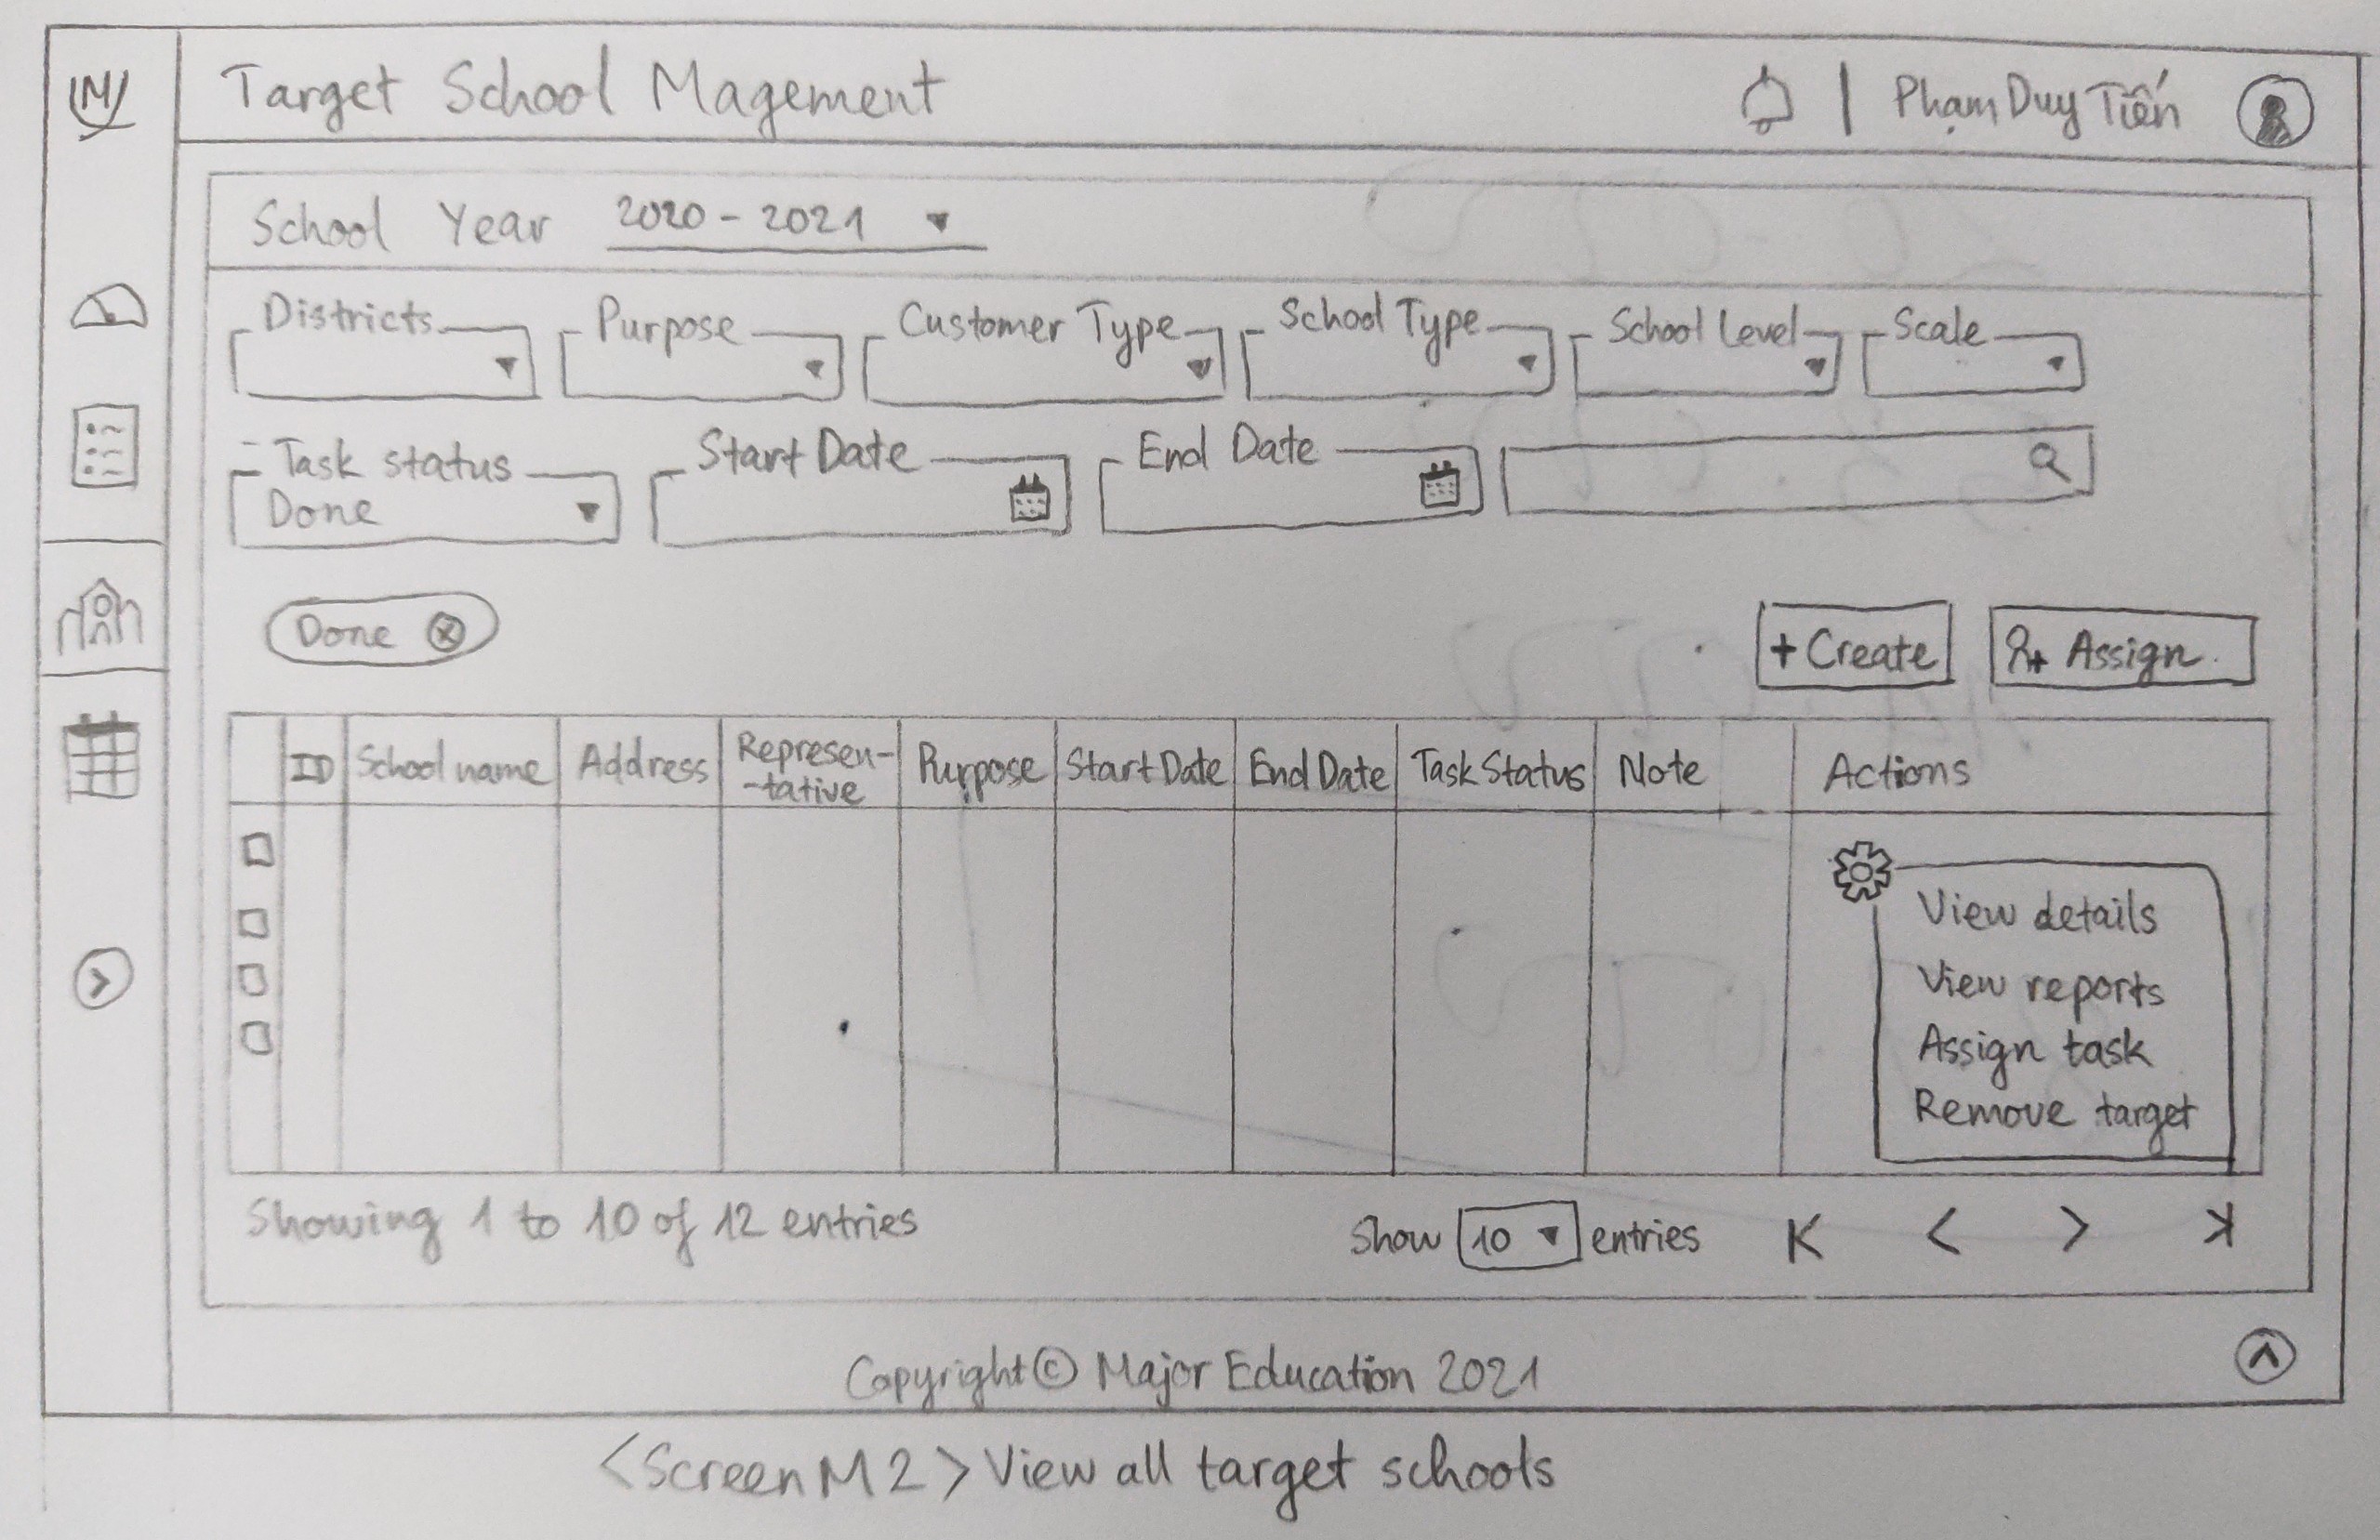 M
Target School Magement
Phạm Duy Tiến
School Year 2020 - 2021
Districts Purpose Customer Type School Type School Level Scale
Task status Start Date End Date
Done
Done
+ Create Assign
ID School name Address Represen- Purpose Start Date End Date Task Status Note Actions
-tative
View details
View reports
Assign task
Remove target
Showing 1 to 10 of 12 entries Show 10 entries
Copyright © Major Education 2021
<Screen M2> View all target schools